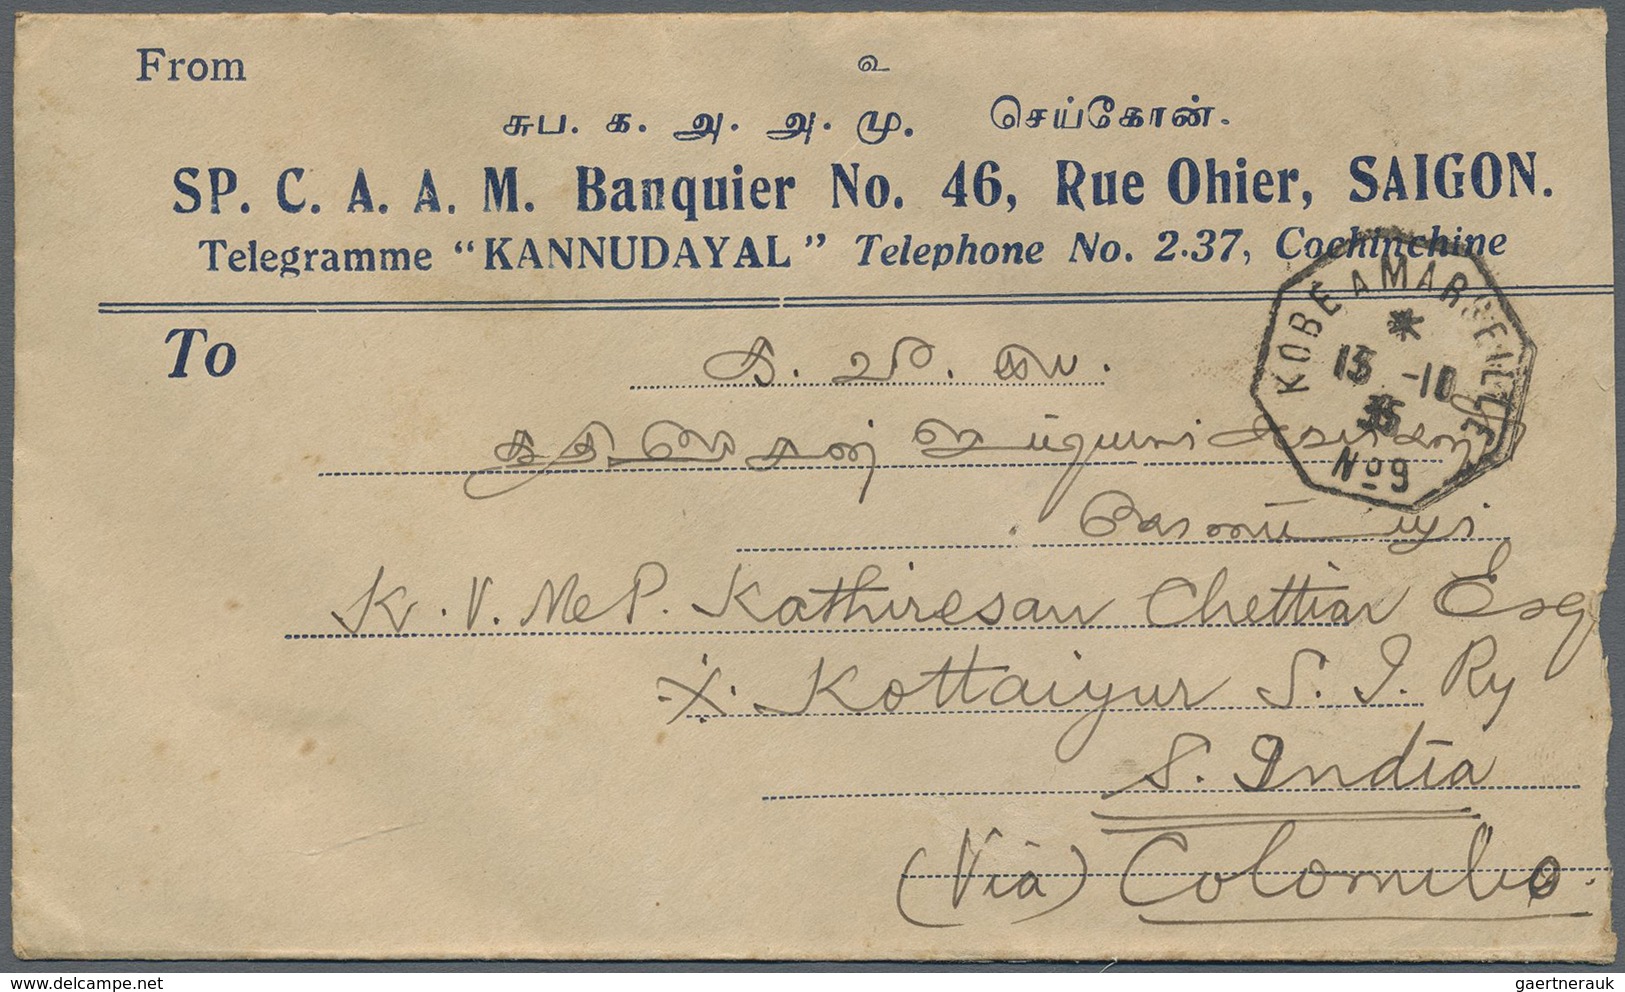 From
உ
சுப. க. அ. அ. மு. செய்கோன்.
SP. C. A. A. M. Banquier No. 46, Rue Ohier, SAIGON.
Telegramme “KANNUDAYAL” Telephone No. 2.37, Cochinchine
KOBE A MARSEILLE
15 -10
35
No 9
To
க. வீ.
K. V. Me P. Kathiresan Chettiar Esq
Kottaiyur S. I. Ry
S. India
(Via) Colombo.
delcampe.net
gaertnerauk